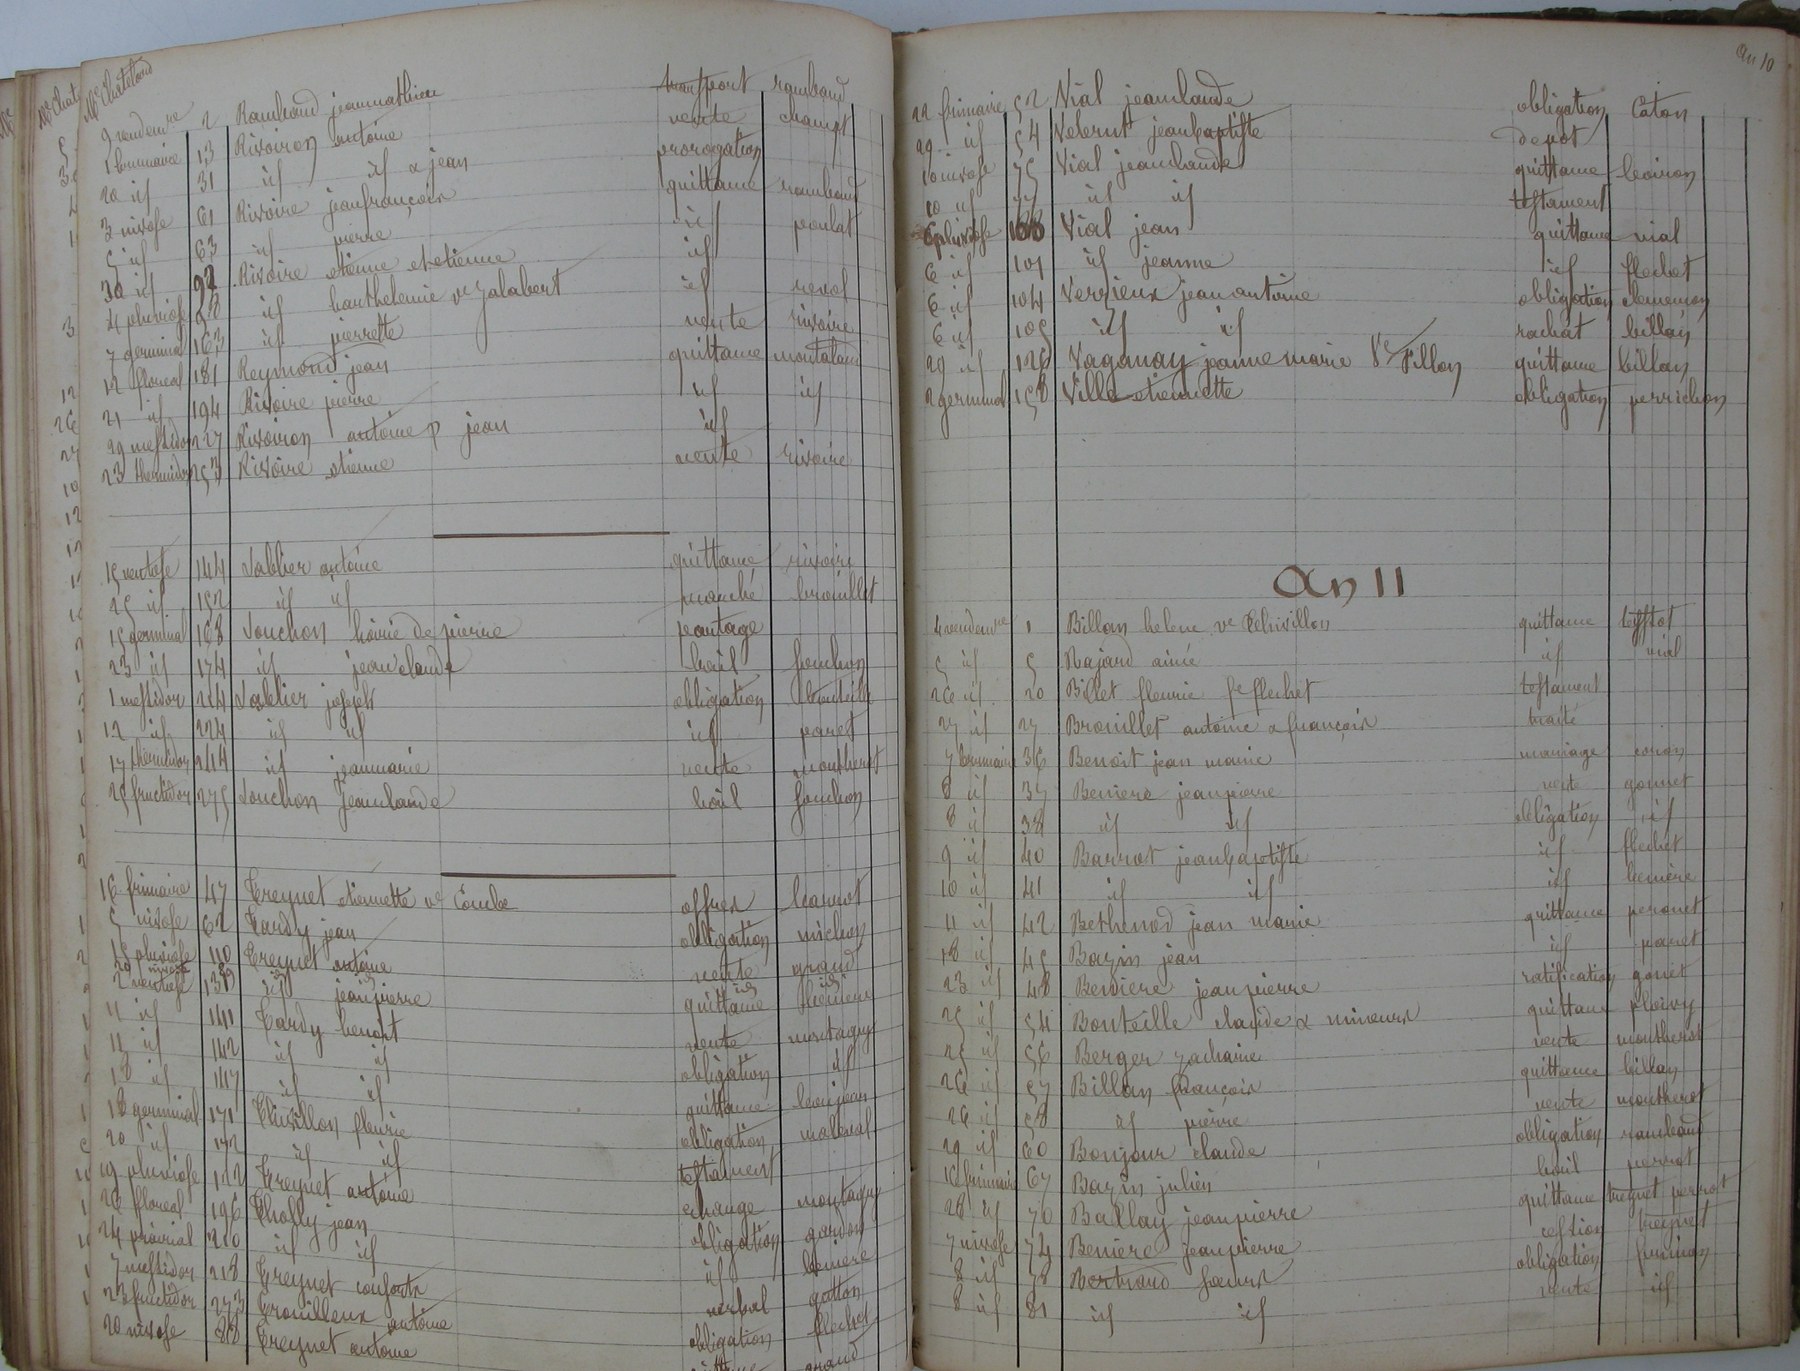 Me Chateland
9 vendemre 2 Rambaud jeanmathieu transport rambaud
1 brumaire 13 Rivoiron antoine vente champt
20 id 31 id id & jean prorogation
3 nivose 61 Rivoire jeanfrançois quittance rambaud
5 id 63 id pierre id poulat
30 id 92 Rivoire etienne et etienne id
4 pluviose 98 id barthelemie ve jalabert id revol
7 germinal 163 id pierrette vente rivoire
12 floreal 181 Reymond jean quittance montaland
21 id 194 Rivoire pierre id id
29 messidor 227 Rivoiron antoine p jean id
23 thermidor 253 Rivoire etienne vente rivoire
15 ventose 144 Sablier antoine quittance rivoire
25 id 152 id id marché brouillet
15 germinal 168 Souchon hoirie de pierre partage
23 id 174 id jean claude bail souchon
1 messidor 214 Sablier joseph obligation bouteille
12 id 224 id id id paret
17 thermidor 244 id jeanmarie vente montherot
25 fructidor 275 Souchon jeanclaude bail souchon
16 frimaire 47 Treynet etiennette ve Combe offres
5 nivose 62 Tardy jean obligation michon
18 pluviose 110 Treynet antoine vente grand
2 ventose 139 id jeanpierre quittance
11 id 141 Tardy benoit vente montagny
11 id 142 id id obligation id
18 id 147 id id quittance
18 germinal 171 Thivillon fleurie obligation malaval
20 id 172 id id testament
19 pluviose 122 Treynet antoine echange montagny
26 floreal 196 Tholly jean obligation
24 prairial 210 id id id beniere
7 messidor 218 Treynet verbal gatton
23 fructidor 273 Trouilleux antoine obligation flechet
20 nivose 88 Treynet antoine grand
an 10
22 frimaire 52 Vial jeanclaude obligation Caton
29 id 54 Velerut jeanbaptiste depot
10 nivose 75 Vial jeanclaude quittance
10 id id id testament
6 pluviose Vial jean quittance vial
6 id 101 id jeanne id flechet
6 id 104 Verrieux jean antoine obligation clemençon
6 id 105 id id rachat billan
29 id 126 Vaganay jeanne marie Ve Fillon quittance billan
2 germinal 158 Ville etiennette obligation perrichon
An 11
4 vendemre 1 Billan helene ve thivillon quittance
5 id 5 Bajard aimé id vial
26 id 20 Billet fleurie fe flechet testament
27 id 27 Brouillet antoine & françois traité
7 brumaire 36 Benoit jean marie mariage
8 id 37 Beniere jeanpierre vente gonnet
8 id 38 id id obligation id
9 id 40 Barrot jeanbaptiste id flechet
10 id 41 id id id beniere
11 id 42 Bethenod jean marie quittance peronet
18 id 45 Bazin jean id paret
23 id 48 Beniere jeanpierre ratification gonet
25 id 54 Bouteille claude & mineurs quittance
25 id 56 Berger zacharie vente montherot
26 id 57 Billan françois quittance billan
26 id 58 id pierre vente montherot
29 id 60 Bonjour claude obligation rambaud
16 frimaire 67 Bazin julien bail perrot
28 id 70 Ballay jeanpierre quittance treynet perrot
7 nivose 74 Beniere jeanpierre cession treynet
8 id 78 Bertrand soeurs obligation
8 id 81 id id vente id